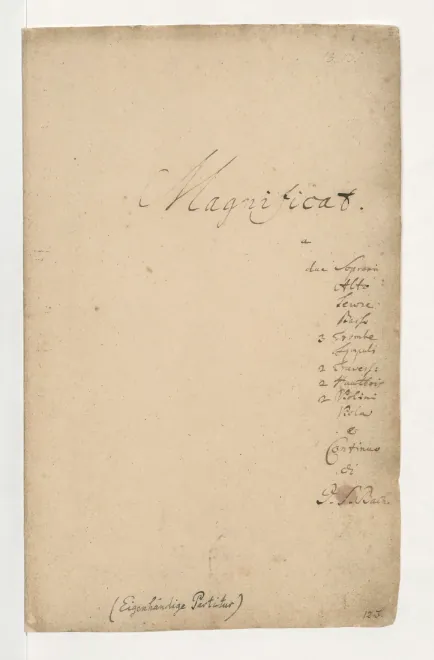 Magnificat.
a
due Soprani
Alto
Tenore
Basso
3 Trombe
Tympali
2 Travers:
2 Hautbois
2 Violini
Viola
e
Continuo
di
J. S. Bach
(Eigenhändige Partitur)
125.